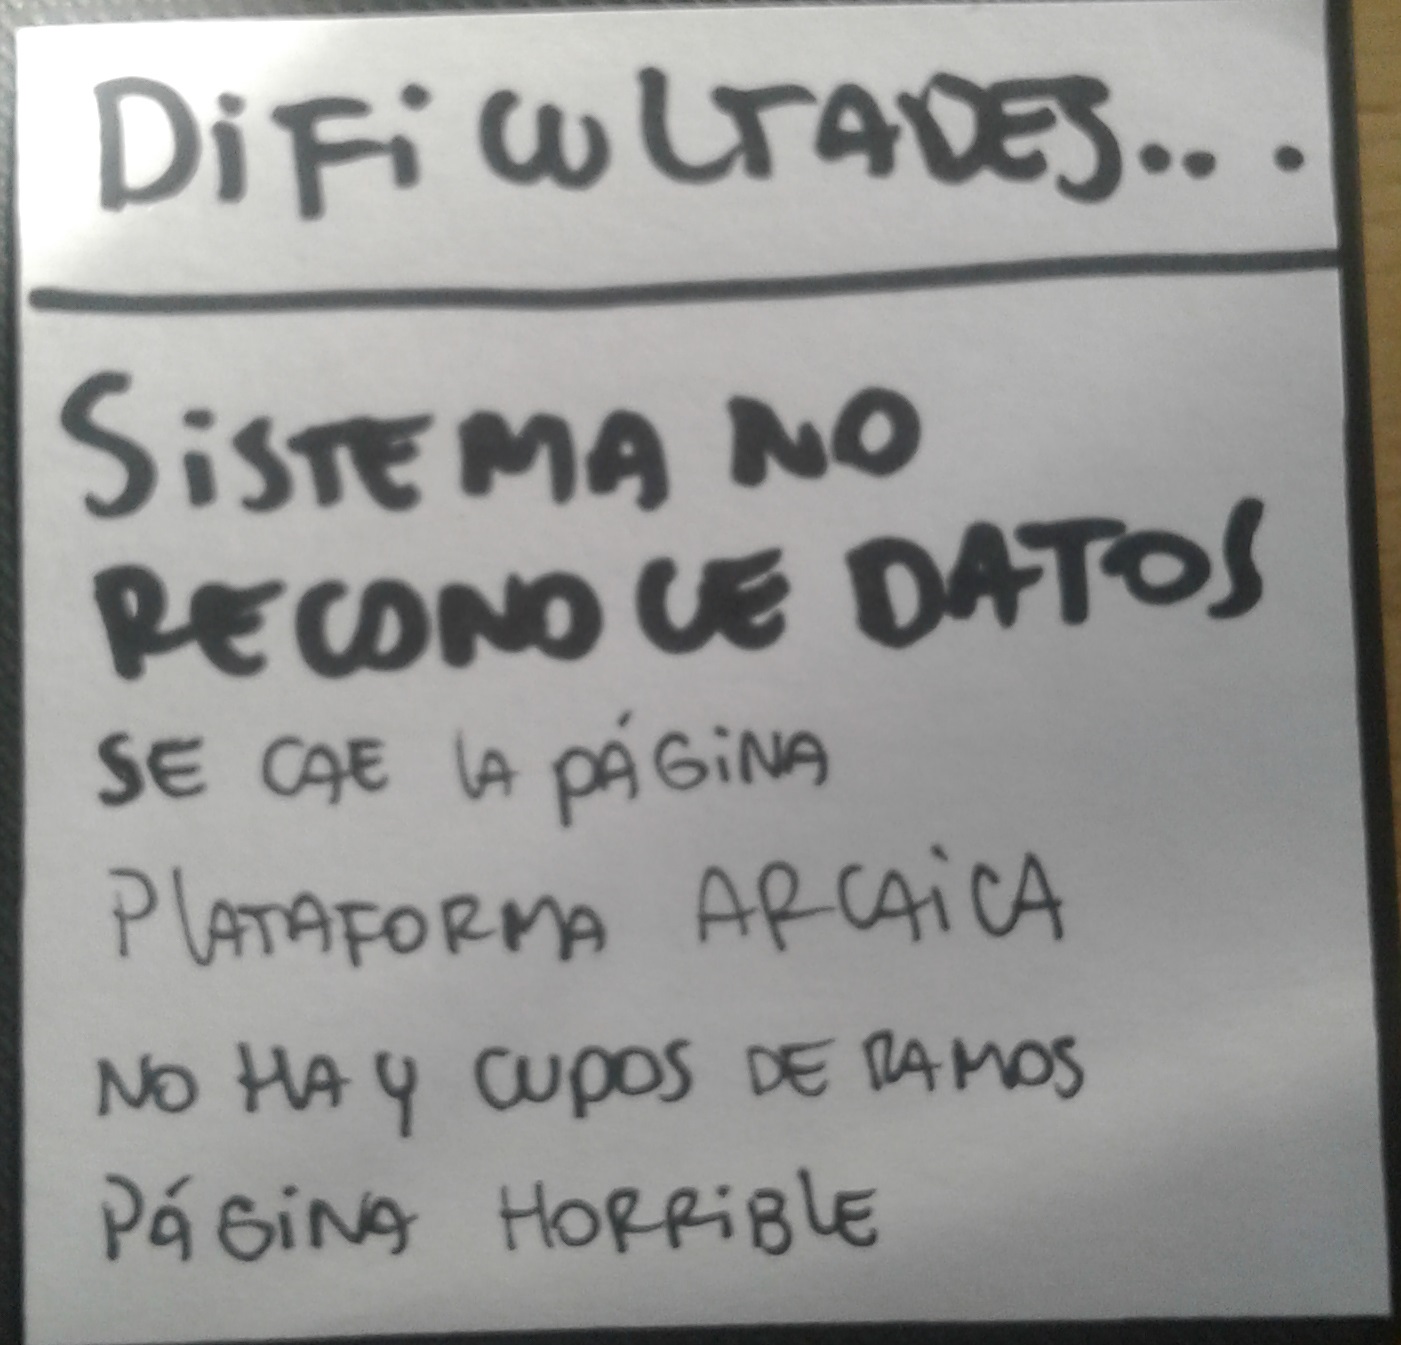 DiFiCULTADES... .
SiSTEMA NO
RECONOCE DATOS
SE CAE LA PÁGiNA
PLATAFORMA ARCAiCA
NO HAY CUPOS DE RAMOS
PÁGiNA HORRiBLE